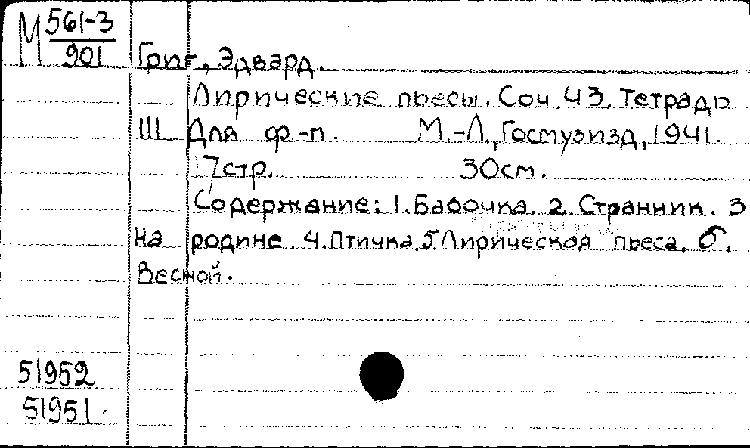 М 561-3
901
Григ, Эдвард.
Лирические пьесы. Соч. 43. Тетрадь
III Для ф-п. М.-Л., Госмузизд, 1941.
17стр. 30см.
Содержание: 1. Бабочка. 2. Странник. 3
на родине. 4. Птичка. 5. Лирическая пьеса. 6.
Весной.
51952
51951.